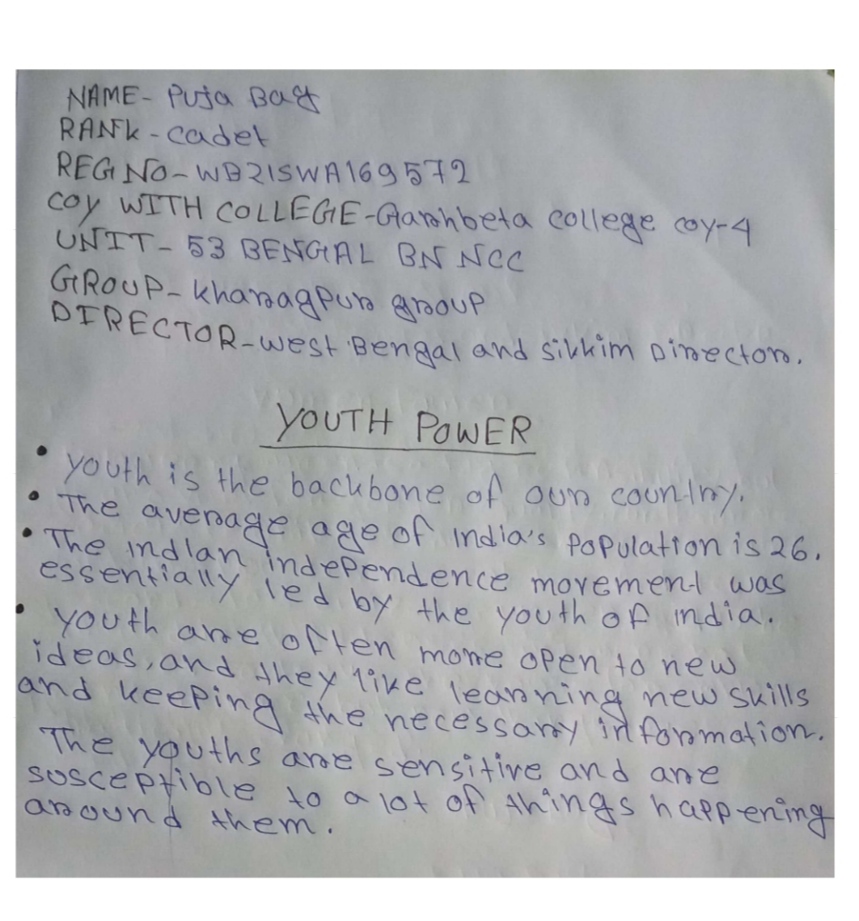 NAME- Puja Bag
RANK - cadet
REG NO- WB21SWA169572
COY WITH COLLEGE-Garhbeta college coy-4
UNIT- 53 BENGAL BN NCC
GROUP- kharagpur group
DIRECTOR-west Bengal and Sikkim Director.
YOUTH POWER
• youth is the backbone of our country.
• The average age of India's Population is 26.
• The Indian independence movement was
essentially led by the youth of india.
• youth are often more open to new
ideas, and they like learning new skills
and keeping the necessary information.
The youths are sensitive and are
susceptible to a lot of things happening
around them.